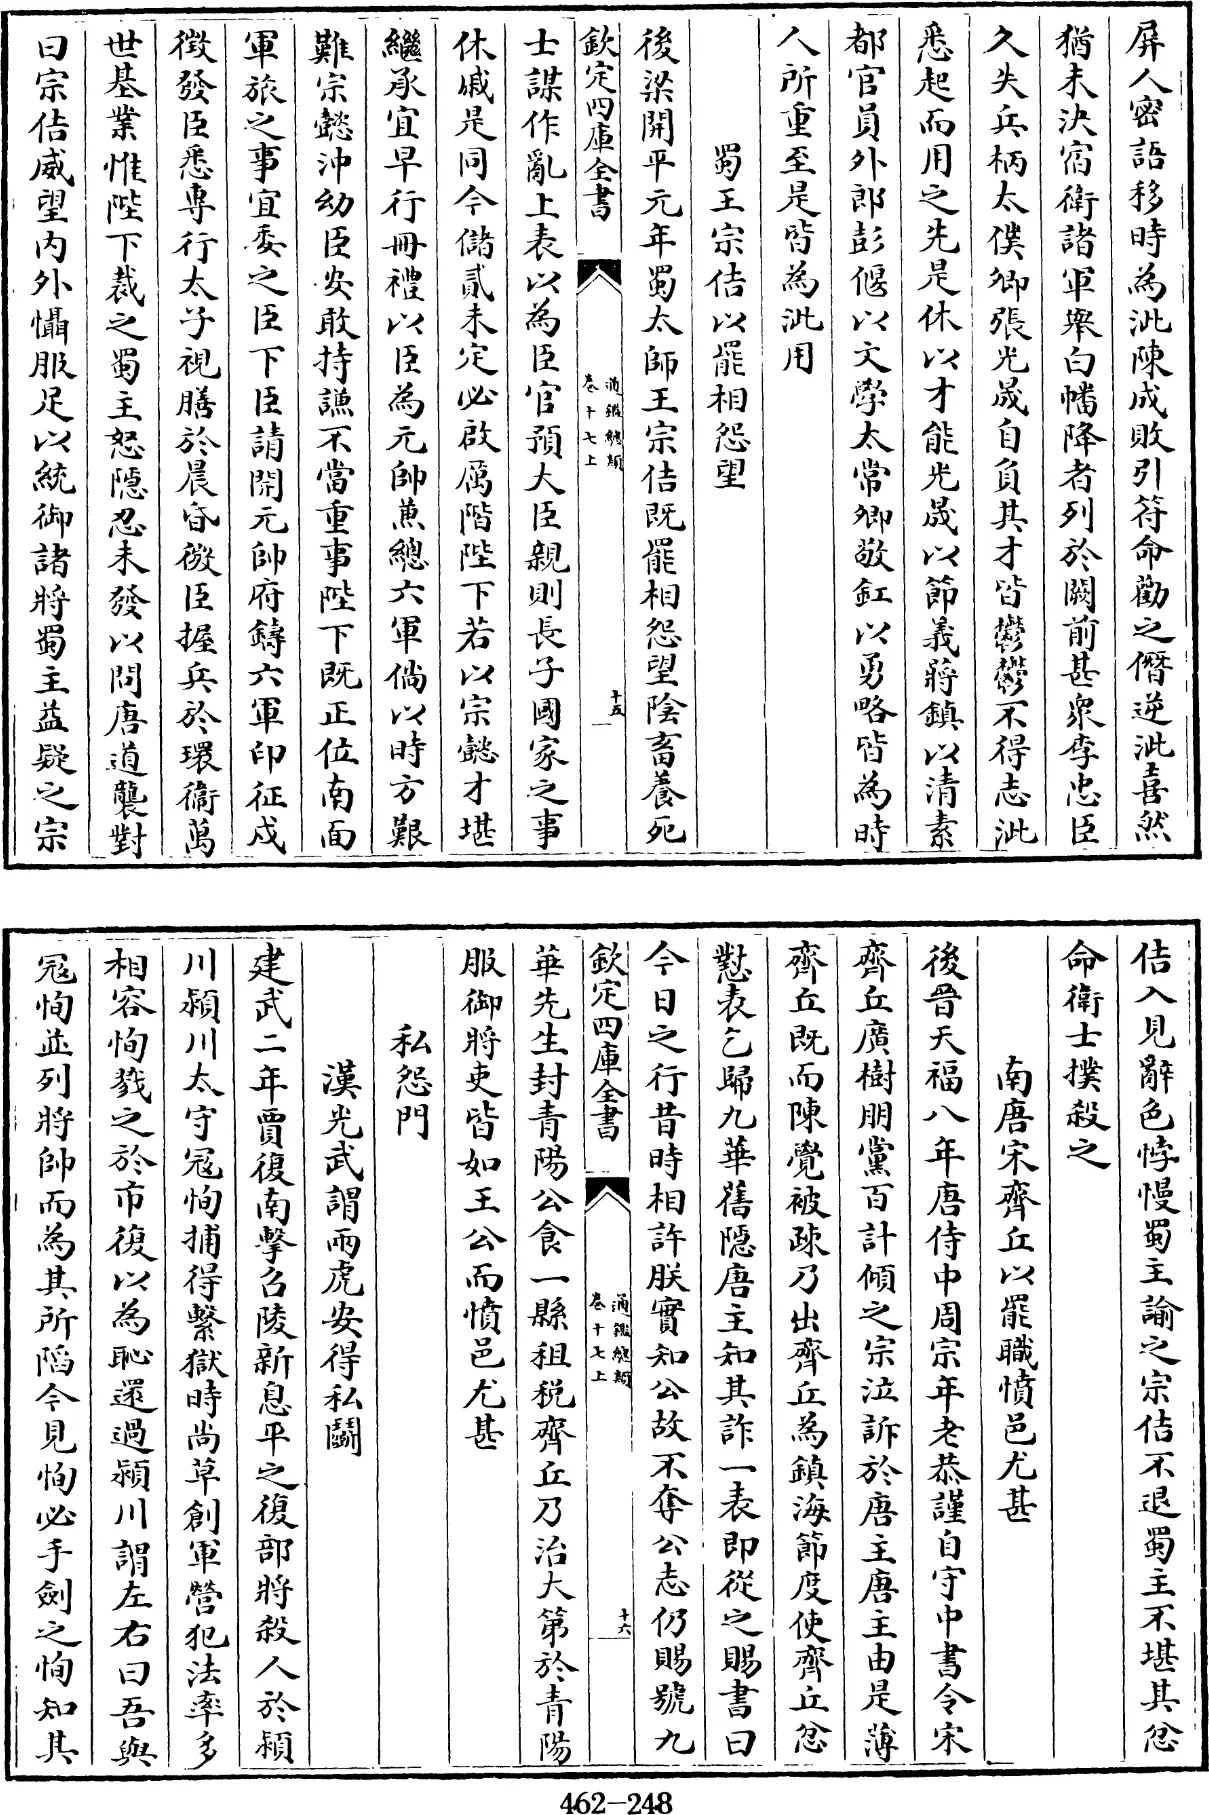 屏人密語移時為泚陳成敗引符命勸之僭逆泚喜然
猶未決宿衛諸軍舉白幡降者列於闕前甚衆李忠臣
久失兵柄太僕卿張光晟自負其才皆鬱鬱不得志泚
悉起而用之先是休以才能光晟以節義蔣鎮以清素
都官員外郎彭偃以文學太常卿敬釭以勇略皆為時
人所重至是皆為泚用
蜀王宗佶以罷相怨望
後梁開平元年蜀太師王宗佶既罷相怨望陰畜養死
欽定四庫全書
通鑑總類
卷十七上
十五
士謀作亂上表以為臣官預大臣親則長子國家之事
休戚是同今儲貳未定必啟厲階陛下若以宗懿才堪
繼承宜早行冊禮以臣為元帥兼總六軍倘以時方艱
難宗懿沖幼臣安敢持謙不當重事陛下既正位南面
軍旅之事宜委之臣下臣請開元帥府鑄六軍印征戍
徵發臣悉專行太子視膳於晨昏微臣握兵於環衛萬
世基業惟陛下裁之蜀主怒隱忍未發以問唐道襲對
曰宗佶威望内外懾服足以統御諸將蜀主益疑之宗
佶入見辭色悖慢蜀主諭之宗佶不退蜀主不堪其忿
命衛士撲殺之
南唐宋齊丘以罷職憤邑尤甚
後晉天福八年唐侍中周宗年老恭謹自守中書令宋
齊丘廣樹朋黨百計傾之宗泣訴於唐主唐主由是薄
齊丘既而陳覺被疎乃出齊丘為鎮海節度使齊丘忿
懟表乞歸九華舊隱唐主知其詐一表即從之賜書曰
今日之行昔時相許朕實知公故不奪公志仍賜號九
欽定四庫全書
通鑑總類
卷十七上
十六
華先生封青陽公食一縣租税齊丘乃治大第於青陽
服御將吏皆如王公而憤邑尤甚
私怨門
漢光武謂兩虎安得私鬭
建武二年賈復南擊召陵新息平之復部將殺人於潁
川潁川太守寇恂捕得繫獄時尚草創軍營犯法率多
相容恂戮之於市復以為恥還過潁川謂左右曰吾與
寇恂並列將帥而為其所䧟今見恂必手劍之恂知其
462-248